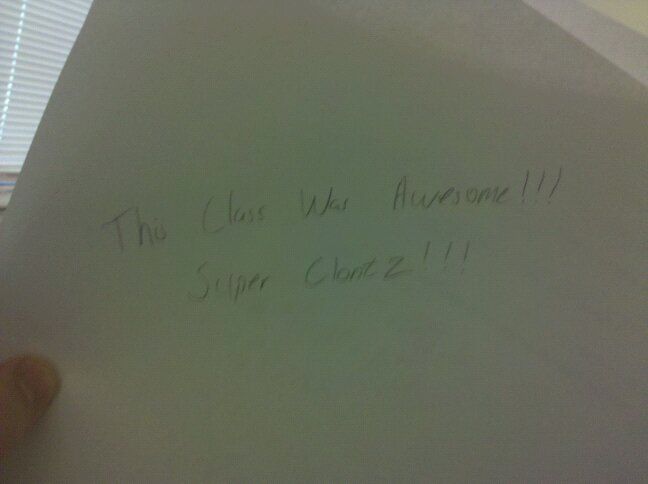 This Class Was Awesome!!!
Super Clontz!!!